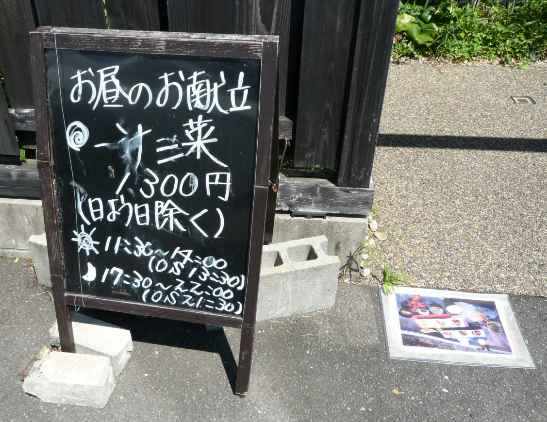 お昼のお献立
一汁三菜
1,300円
(日よう日除く)
11:30~14:00
(OS 13:30)
17:30~22:00
(OS 21:30)